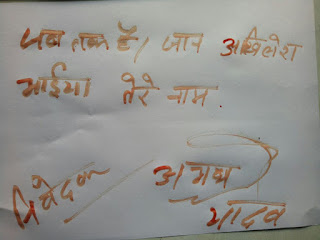 जब तक है, जान अखिलेश
भाईया तेरे नाम
निवेदक अभय
यादव